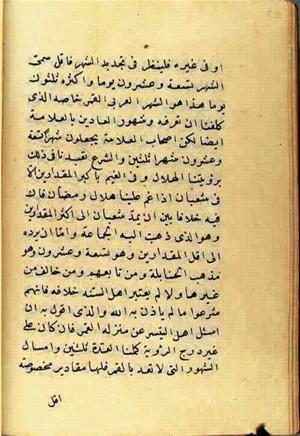 او فى غيره فلينظر فى تحديد الشهر فاقل سمى
الشهر تسعة وعشرون يوما واكثره ثلثون
يوما هذا هو الشهر العربى القمرى خاصه الذى
كلفنا ان نعرفه وشهور العادين بالعلامة
ايضا لكن اصحاب العلامة يجعلون شهرا تسعة
وعشرون وشهرا ثلثين والشرع تعبدنا فى ذلك
برؤيتنا الهلال وفى الغيم باكبر المقدارين الا
فى شعبان اذا غم علينا هلال رمضان فان
فيه خلافا بين ان يمد شعبان الى اكثر المقدارين
وهو الذى ذهبت اليه الجماعة واما ان يرده
الى اقل المقدارين وهو تسعة وعشرون وهو
مذهب الحنابلة ومن تابعهم ومن خالف من
غير هاولا لم يعتبر اهل السنه خلافه فانهم
شرعوا ما لم ياذن به الله والذى اقول به ان
اسئل اهل التيسير عن منزله القمر فان كان على
غير درج الرؤية كملنا العدة ثلثين واما سائر
الشهور التى لا تعد بالقمر فلها مقادير مخصوصة
اقل